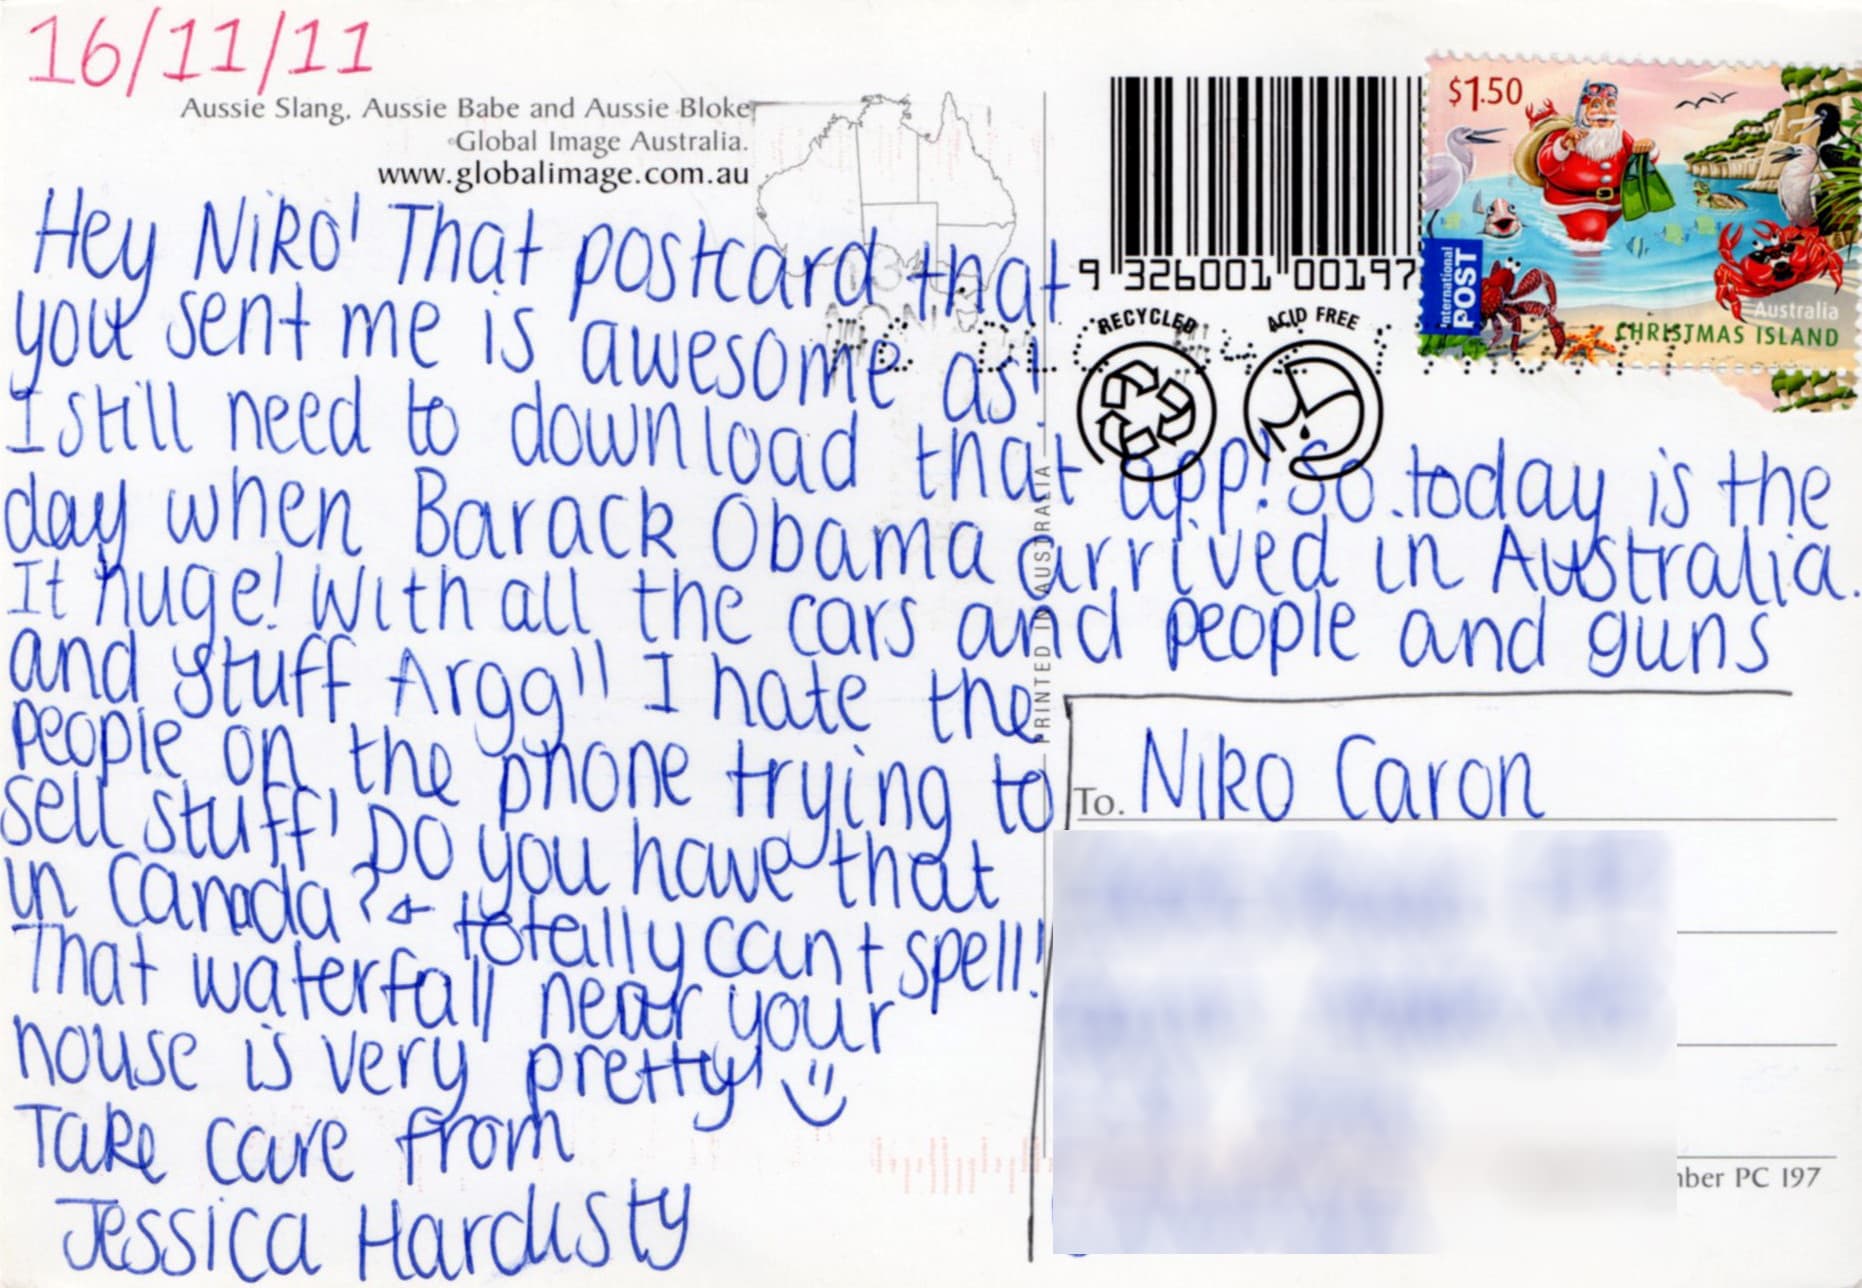 16/11/11
Aussie Slang, Aussie Babe and Aussie Bloke
©Global Image Australia.
www.globalimage.com.au
9 326001 00197
RECYCLED
ACID FREE
$1.50
International
POST
Australia
CHRISTMAS ISLAND
Hey Niko! That postcard that
you sent me is awesome as!
I still need to download that app! So today is the
day when Barack Obama arrived in Australia.
It huge! With all the cars and people and guns
and stuff Argg!! I hate the
people on the phone trying to
sell stuff! Do you have that
in Canada? ← totally can't spell!
That waterfall near your
house is very pretty!
Take care from
Jessica Hardusty
PRINTED IN AUSTRALIA
To. Niko Caron
PC 197